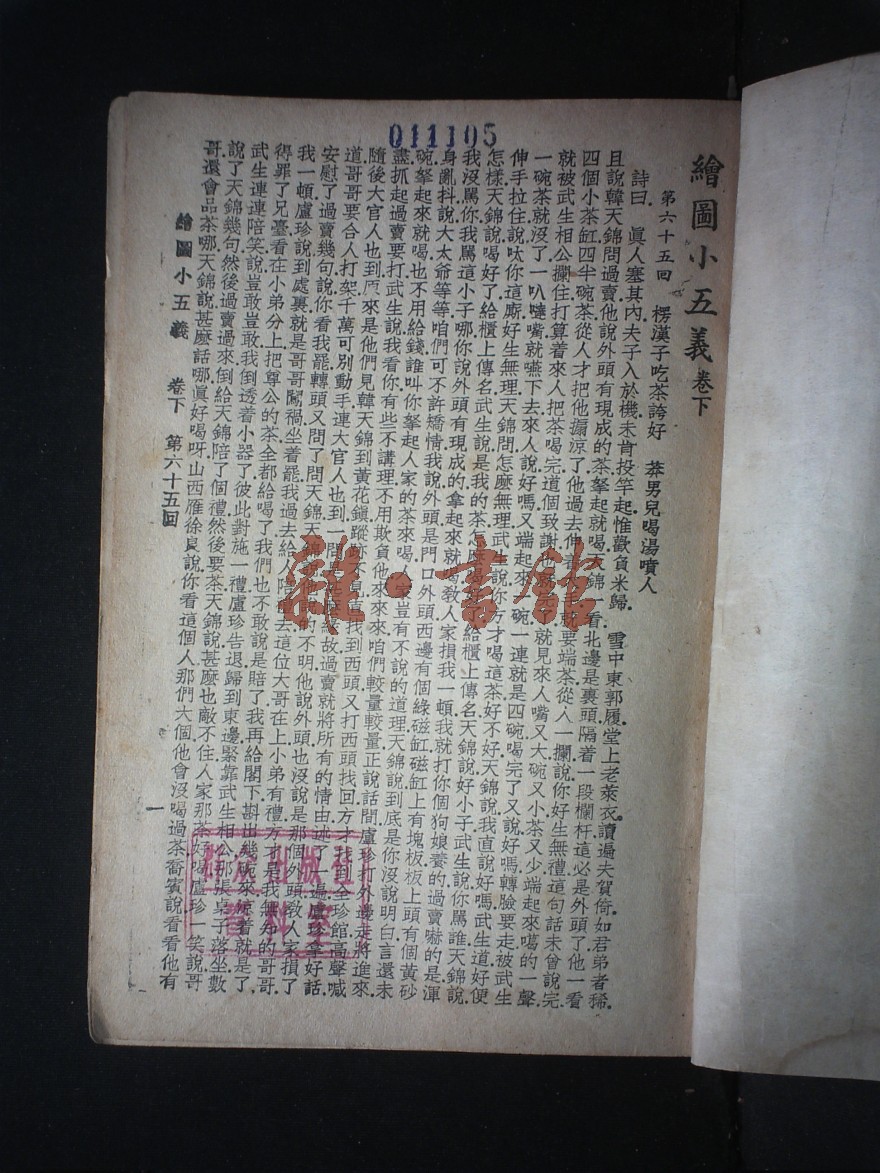 011105
繪圖小五義卷下
第六十五回　楞漢子吃茶誇好　莽男兒喝湯噴人
詩曰．眞人塞其內夫子入於機未肯投竿起惟歡負米歸．雪中東郭履堂上老萊衣讀遍天賀倚如君弟者稀．
且說韓天錦問過賣他說外頭有現成的茶拏起就喝天錦一看北邊是裏頭隔着一段欄杆這必是外頭了他一看
四個小茶缸四半碗茶從人才把他搧涼了他過去伸手就要端茶從人一攔說你好生無禮這句話未曾說完
就被武生相公攔住打算着來人把茶喝完這個致謝就見來人嘴又大碗又小茶又少端起來噶的一聲
一碗茶就沒了一叭噠嘴就嚥下去來人說好嗎又端起來一碗一連就是四碗喝完了又說好嗎轉臉要走被武生
伸手拉住說呔你這廝好生無理天錦問怎麼無理武生說你方才喝這茶好不好天錦說我直說好嗎武生道好便
怎樣天錦說喝好了給櫃上傳名武生說是我的茶怎麼給櫃上傳名天錦說好小子武生說你罵誰天錦說
我沒罵你我罵這小子哪你說外頭有現成的拿起來就喝敎人家損我一頓我就打你個狗娘養的過賣嚇的是渾
身亂抖說大太爺等等咱們可不許矯情我說外頭是門口外頭西邊有個綠磁缸磁缸上有塊板板上頭有個黃砂
碗拏起來就喝也不用給錢誰叫你拏起人家的茶來喝人家豈有不說的道理天錦說到底是你沒說明白言還未
盡抓起過賣要打武生說我看你有些不講理不用欺負他來來來咱們較量較量正說話間盧珍打外邊走將進來
隨後大官人也到原來是他們見韓天錦到黃花鎭蹤跡不見直找到西頭又打西頭找回方才找到全珍館高聲喊
道哥哥要合人打架千萬可別動手連大官人也到一問是甚麼緣故過賣就將所有的情由述了一遍盧珍拿好話
安慰了過賣幾句說你看我罷轉頭又問了問天錦天錦說他說的不明他說外頭也沒說是那個外頭敎人家損了
我一頓盧珍說到處裏就是哥哥闖禍坐着罷我過去給人陪禮去這位大哥在上小弟有禮方才是我無知的哥哥
得罪了兄臺看在小弟分上把尊公的茶全都給喝了我們也不敢說是賠了我再給閣下斟出幾碗來涼着就是了
武生連連陪笑說豈敢豈敢我倒透着小器了彼此對施一禮盧珍告退歸到東邊緊靠武生相公那張桌子落坐數
說了天錦幾句然後過賣過來倒給天錦陪了個禮然後要茶天錦說甚麼也敵不住人家那茶好喝盧珍一笑說哥
哥還會品茶哪天錦說甚麼話哪眞好喝呀山西雁徐良說你看這個人那們大個他會沒喝過茶喬賓說看看他有
繪圖小五義　卷下　第六十五回　一
雜·書館